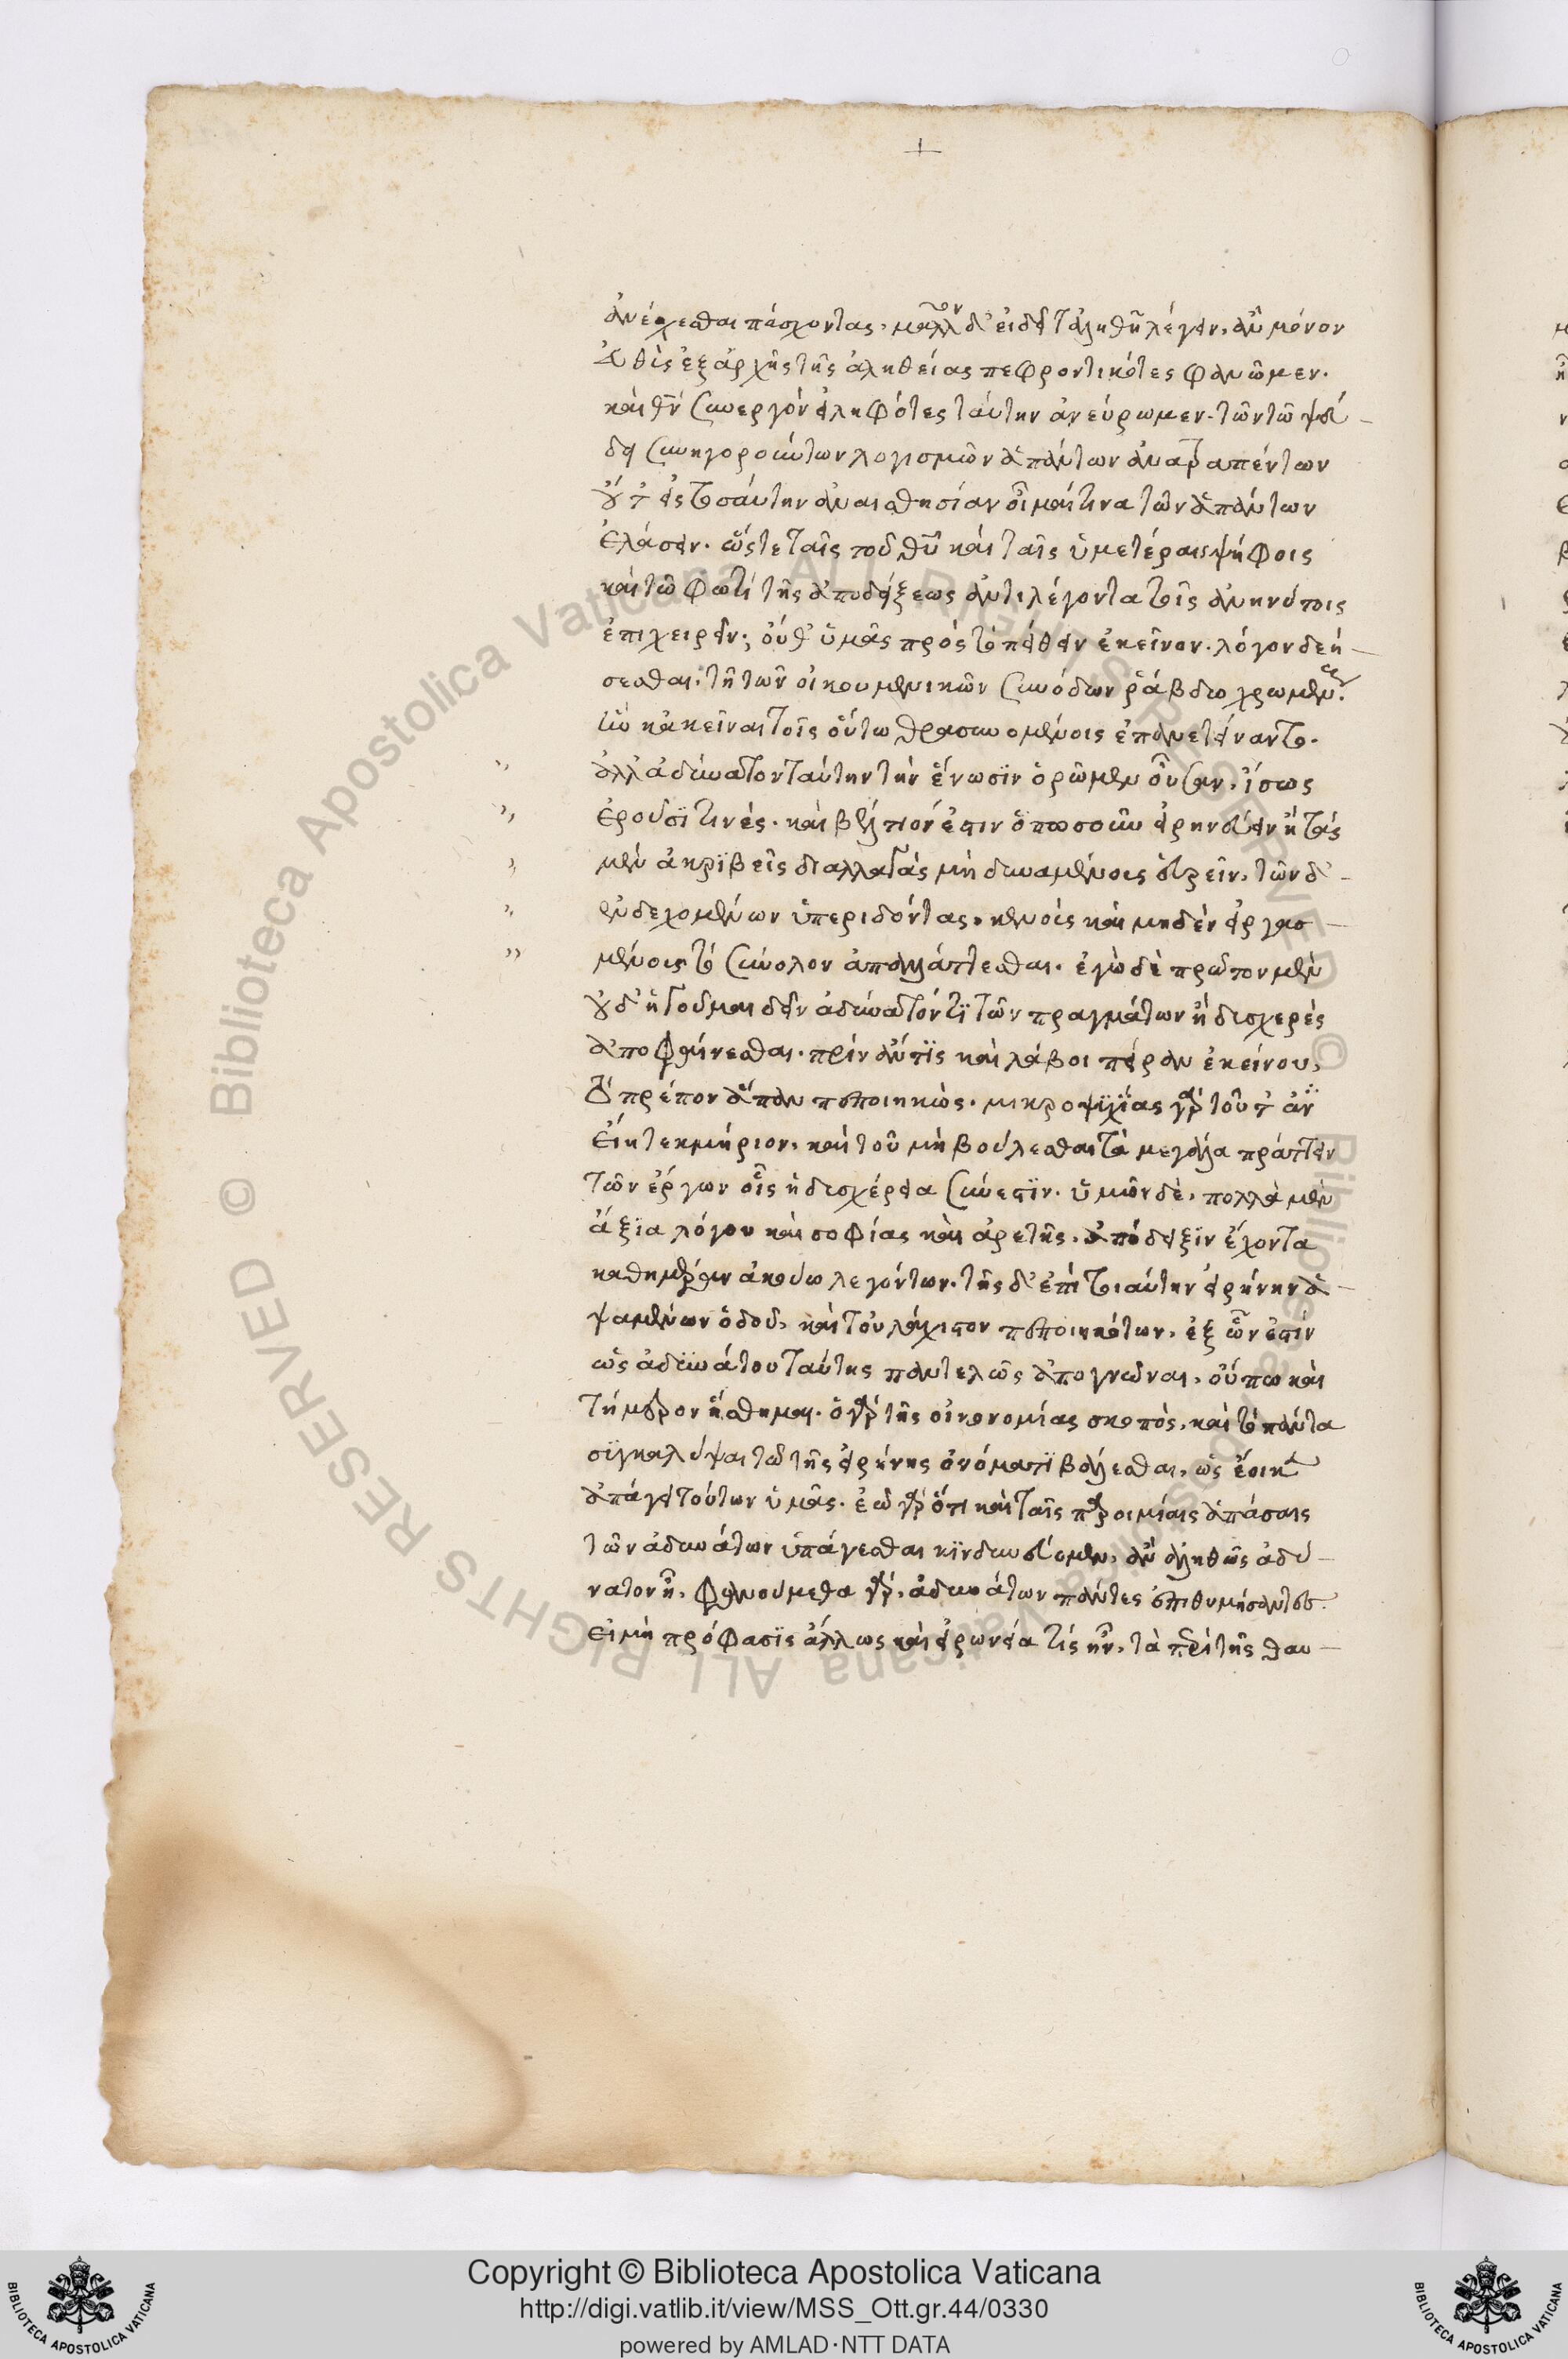 ἀνέχεσθαι πάσχοντας, μᾶλλον δ' εἰ δεῖ τἀληθῆ λέγειν, ἂν μόνον
εὐθὺς ἐξ ἀρχῆς τῆς ἀληθείας πεφροντικότες φανῶμεν.
καὶ θν συνεργὸν εἰληφότες ταύτην ἀνεύρωμεν. τῶν τῶ ψεύ-
δει συνηγορούντων λογισμῶν ἁπάντων ἀνατραπέντων
οὔτ' εἰς τοσαύτην ἀναισθησίαν οἶμαί τινα τῶν ἁπάντων
ἐλάσειν. ὥστε ταῖς τοῦ θυ καὶ ταῖς ὑμετέραις ψήφοις
καὶ τῶ φωτὶ τῆς ἀποδείξεως ἀντιλέγοντα τοῖς ἀνηνύτοις
ἐπιχειρεῖν; οὔθ' ὑμᾶς πρὸς τὸ πείθειν ἐκεῖνον. λόγον δεή-
σεσθαι. τῆ τῶν οἰκουμενικῶν συνόδων ῥάβδω χρωμένους.
ἣν κἀκεῖναι τοῖς οὕτω θρασυνομένοις ἐπανετείναντο.
ἀλλ' ἀδύνατον ταύτην τὴν ἕνωσϊν ὁρῶμεν οὖσαν, ἴσως
ἐροῦσϊ τινές. καὶ βέλτιόν ἐστιν ὁπωσοῦν εἰρηνεύειν ἢ τὰς
μὲν ἀκρϊβεῖς διαλλαγὰς μὴ δυναμένους εὑρεῖν, τῶν δ' -
ἐνδεχομένων ὑπεριδόντας, κενοὺς καὶ μηδὲν εἰργασ-
μένους τὸ σύνολον ἀπαλλάττεσθαι. ἐγὼ δὲ πρῶτον μὲν
οὐδ' ἡγοῦμαι δεῖν ἀδύνατόν τϊ τῶν πραγμάτων ἢ δυσχερὲς
ἀποφαίνεσθαι. πρὶν ἄν τϊς καὶ λάβοι πεῖραν ἐκείνου,
τὸ πρέπον ἅπαν πεποιηκώς. μικροψϋχίας γὰρ τοῦτ' ἂν
εἴη τεκμήριον, καὶ τοῦ μὴ βούλεσθαι τὰ μεγάλα πράττειν
τῶν ἔργων οἷς ἡ δυσχέρεια σύνεστϊν. ὑμῶν δὲ, πολλὰ μὲν
ἄξια λόγου καὶ σοφίας καὶ ἀρετῆς. ἀπόδειξϊν ἔχοντα
καθημέραν ἀκούω λεγόντων. τῆς δ' ἐπὶ τοιαύτην εἰρήνην ἁ-
ψαμένων ὁδοῦ, καὶ τοὐλάχιστον πεποιηκότων, ἐξ ὧν ἐστὶν
ὡς ἀδϋνάτου ταύτης παντελῶς ἀπογνῶναι, οὔπω καὶ
τήμερον ᾔσθημαι. ὁ γὰρ τῆς οἰκονομίας σκοπὸς, καὶ τὸ πάντα
συγκαλύψαι τῶ τῆς εἰρήνης ὀνόματϊ βούλεσθαι, ὡς ἔοικεν
ἀπάγει τούτων ὑμᾶς. ἐῶ γὰρ ὅτι καὶ ταῖς παροιμίαις ἁπάσαις
τῶν ἀδυνάτων ὑπάγεσθαι κϊνδυνεύσομεν, ἂν ἀληθῶς ἀδύ-
νατον ἦ. φανούμεθα γὰρ, ἀδυνάτων πάντες ἐπιθυμήσαντες.
εἰ μὴ πρόφασϊς ἄλλως καὶ εἰρωνεία τίς ἦν, τὰ περὶ τῆς θαυ-
Copyright © Biblioteca Apostolica Vaticana
http://digi.vatlib.it/view/MSS_Ott.gr.44/0330
powered by AMLAD·NTT DATA